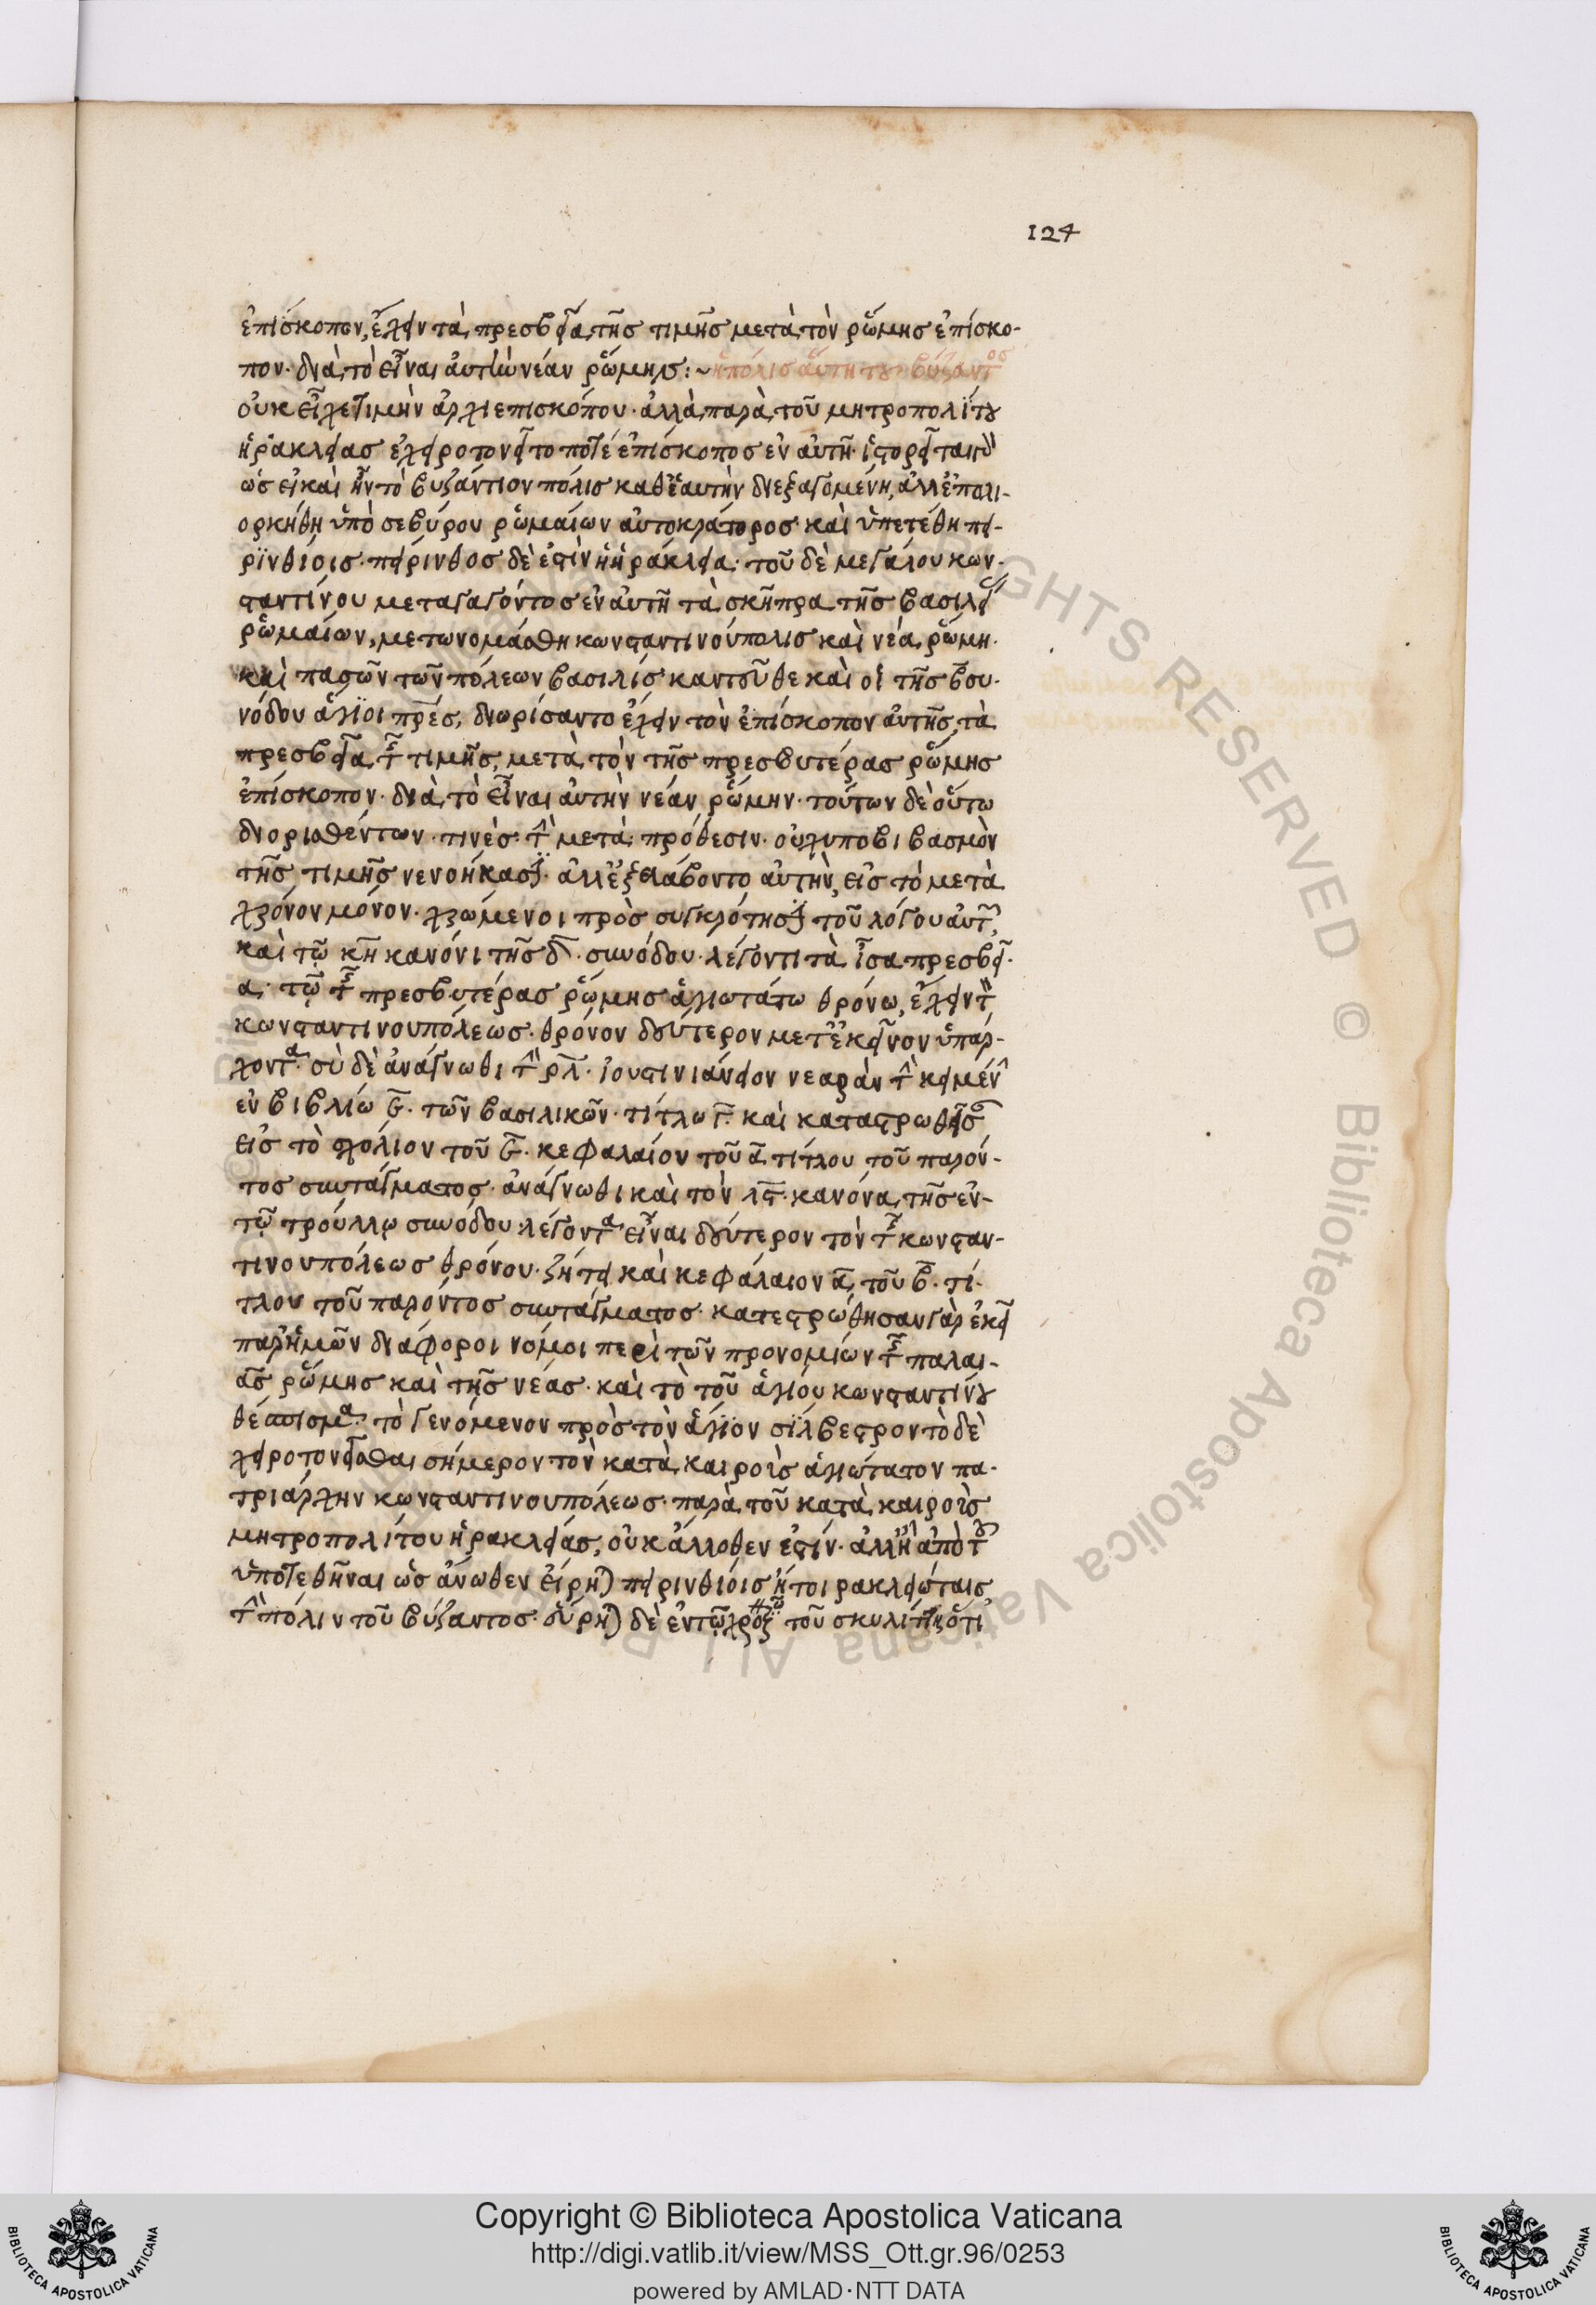 124
ἐπίσκοπον, ἔχειν τὰ πρεσβεῖα τῆς τιμῆς μετὰ τὸν ῥώμης ἐπίσκο-
πον· διὰ τὸ εἶναι αὐτὴν νέαν ῥώμην :~ ἡ πόλις αὕτη τοῦ βύζαντος
οὐκ εἶχε τιμὴν ἀρχιεπισκόπου· ἀλλὰ παρὰ τοῦ μητροπολίτου
ἡρακλείας ἐχειροτονεῖτο ποτὲ ἐπίσκοπος ἐν αὐτῇ· ἱστορεῖται
ὡς εἰ καὶ ἦν τὸ βυζάντιον πόλις καθ' ἑαυτὴν διεξαγομένη, ἀλλ' ἐπολι-
ορκήθη ὑπὸ σεβύρου ῥωμαίων αὐτοκράτορος· καὶ ὑπετέθη πει-
ρϊνθίοις· πείρινθος δὲ ἐστὶν ἡ ἡράκλεια· τοῦ δὲ μεγάλου κων-
σταντίνου μεταγαγόντος ἐν αὐτῇ τὰ σκῆπρα τῆς βασιλείας
ῥωμαίων, μετωνομάσθη κωνσταντινούπολις καὶ νέα ῥώμη·
καὶ πασῶν τῶν πόλεων βασιλίς· καντεῦθε καὶ οἱ τῆς β̅ συ-
νόδου ἅγιοι πρ̅ες, διωρίσαντο ἔχειν τὸν ἐπίσκοπον αὐτῆς, τὰ
πρεσβεῖα τῆς τιμῆς, μετὰ τὸν τῆς πρεσβυτέρας ῥώμης
ἐπίσκοπον· διὰ τὸ εἶναι αὐτὴν νέαν ῥώμην· τούτων δὲ οὕτω
διορισθέντων· τινὲς τὴν μετὰ πρόθεσιν· οὐχ ὑποβιβασμὸν
τῆς τιμῆς νενοήκασιν· ἀλλ' ἐξελάβοντο αὐτὴν, εἰς τὸ μετὰ
χρόνον μόνον· χρώμενοι πρὸς συγκρότησιν τοῦ λόγου αὐτῶν,
καὶ τῷ κη̅ κανόνι τῆς δ̅· συνόδου· λέγοντι τὰ ἴσα πρεσβεῖ-
α· τῷ τῆς πρεσβυτέρας ῥώμης ἁγιωτάτω θρόνω, ἔχειν τὸν
κωνσταντινουπόλεως· θρόνον δεύτερον μετ' ἐκεῖνον ὑπάρ-
χοντα· σὺ δὲ ἀνάγνωθι τὴν ρλ̅· ἰουστινιάνειον νεαρὰν τὴν κειμένην
ἐν βιβλίω ϛ̅· τῶν βασιλικῶν· τίτλω γ̅· καὶ καταστρωθεῖσαν
εἰς τὸ σχόλιον τοῦ ϛ̅· κεφαλαίου τοῦ α̅ τίτλου τοῦ παρόν-
τος συντάγματος· ἀνάγνωθι καὶ τὸν λϛ̅· κανόνα, τῆς ἐν-
τῷ τρούλλῳ συνόδου λέγοντα εἶναι δεύτερον τὸν τῆς κωνσταν-
τινουπόλεως θρόνου· ζήτει καὶ κεφάλαιον α̅, τοῦ β̅· τί-
τλου τοῦ παρόντος συντάγματος· κατεστρώθησαν γὰρ ἐκεῖ
παρ' ἡμῶν διάφοροι νόμοι περὶ τῶν προνομίων τῆς παλαι-
ᾶς ῥώμης καὶ τῆς νέας· καὶ τὸ τοῦ ἁγίου κωνσταντίνου
θέσπισμα· τὸ γενόμενον πρὸς τὸν ἅγϊον σΐλβεστρον τὸ δὲ
χειροτονεῖσθαι σήμερον τὸν κατὰ καιροὺς ἁγιώτατον πα-
τριάρχην κωνσταντινουπόλεως· παρὰ τοῦ κατὰ καιροὺς
μητροπολίτου ἡρακλείας, οὐκ ἄλλοθεν ἐστίν· ἀλλ' ἢ ἀπὸ τοῦ
ὑποτεθῆναι ὡς ἄνωθεν εἴρηται πειρινθίοις ἤτοι ρακλειώταις
τὴν πόλιν τοῦ βύζαντος· εὕρηται δὲ ἐν τῷ τοῦ σκυλίτζη ὅτι